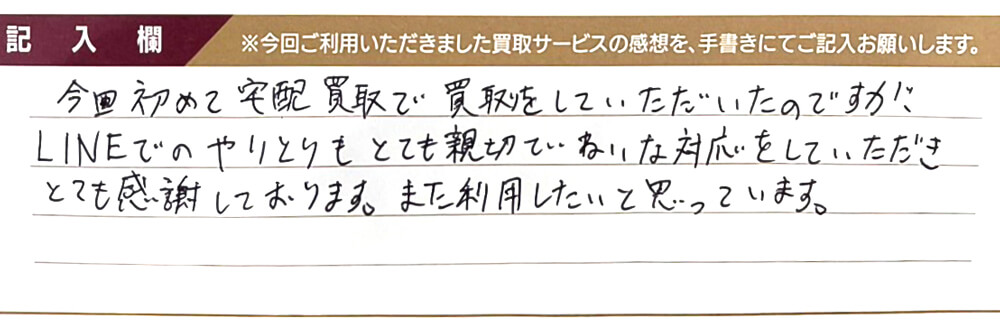 記入欄 ※今回ご利用いただきました買取サービスの感想を、手書きにてご記入お願いします。
今回初めて宅配買取で買取をしていただいたのですが、
LINEでのやりとりもとても親切ていねいな対応をしていただき
とても感謝しております。また利用したいと思っています。